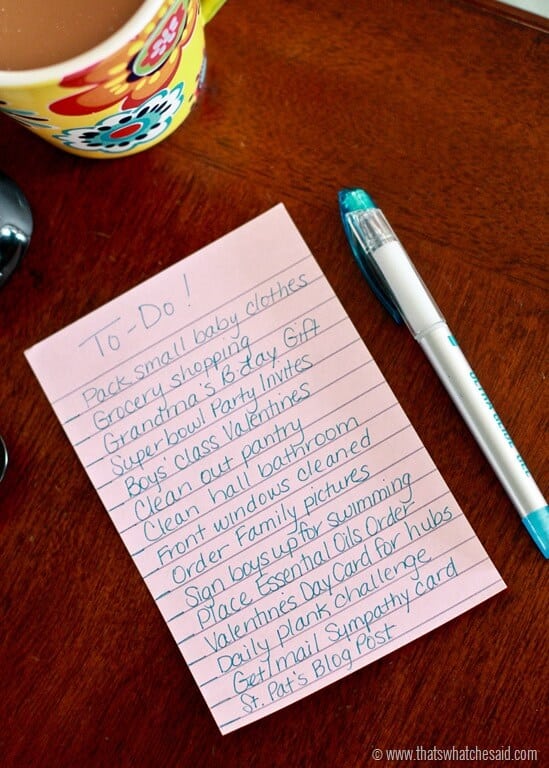 To-Do!
Pack small baby clothes
Grocery shopping
Grandma's B-Day Gift
Superbowl Party Invites
Boys' class Valentines
Clean out pantry
Clean hall bathroom
Front windows cleaned
Order Family pictures
Sign boys up for swimming
Place Essential Oils Order
Valentines Day Card for hubs
Daily plank challenge
Get/mail Sympathy card
St. Pat's Blog Post
© www.thatswhatchesaid.com